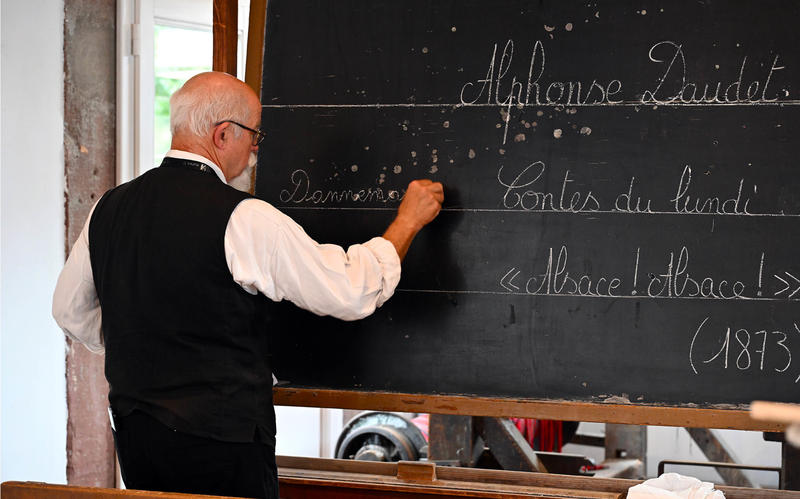 Alphonse Daudet.
Contes du lundi
« Alsace ! Alsace ! »
(1873)